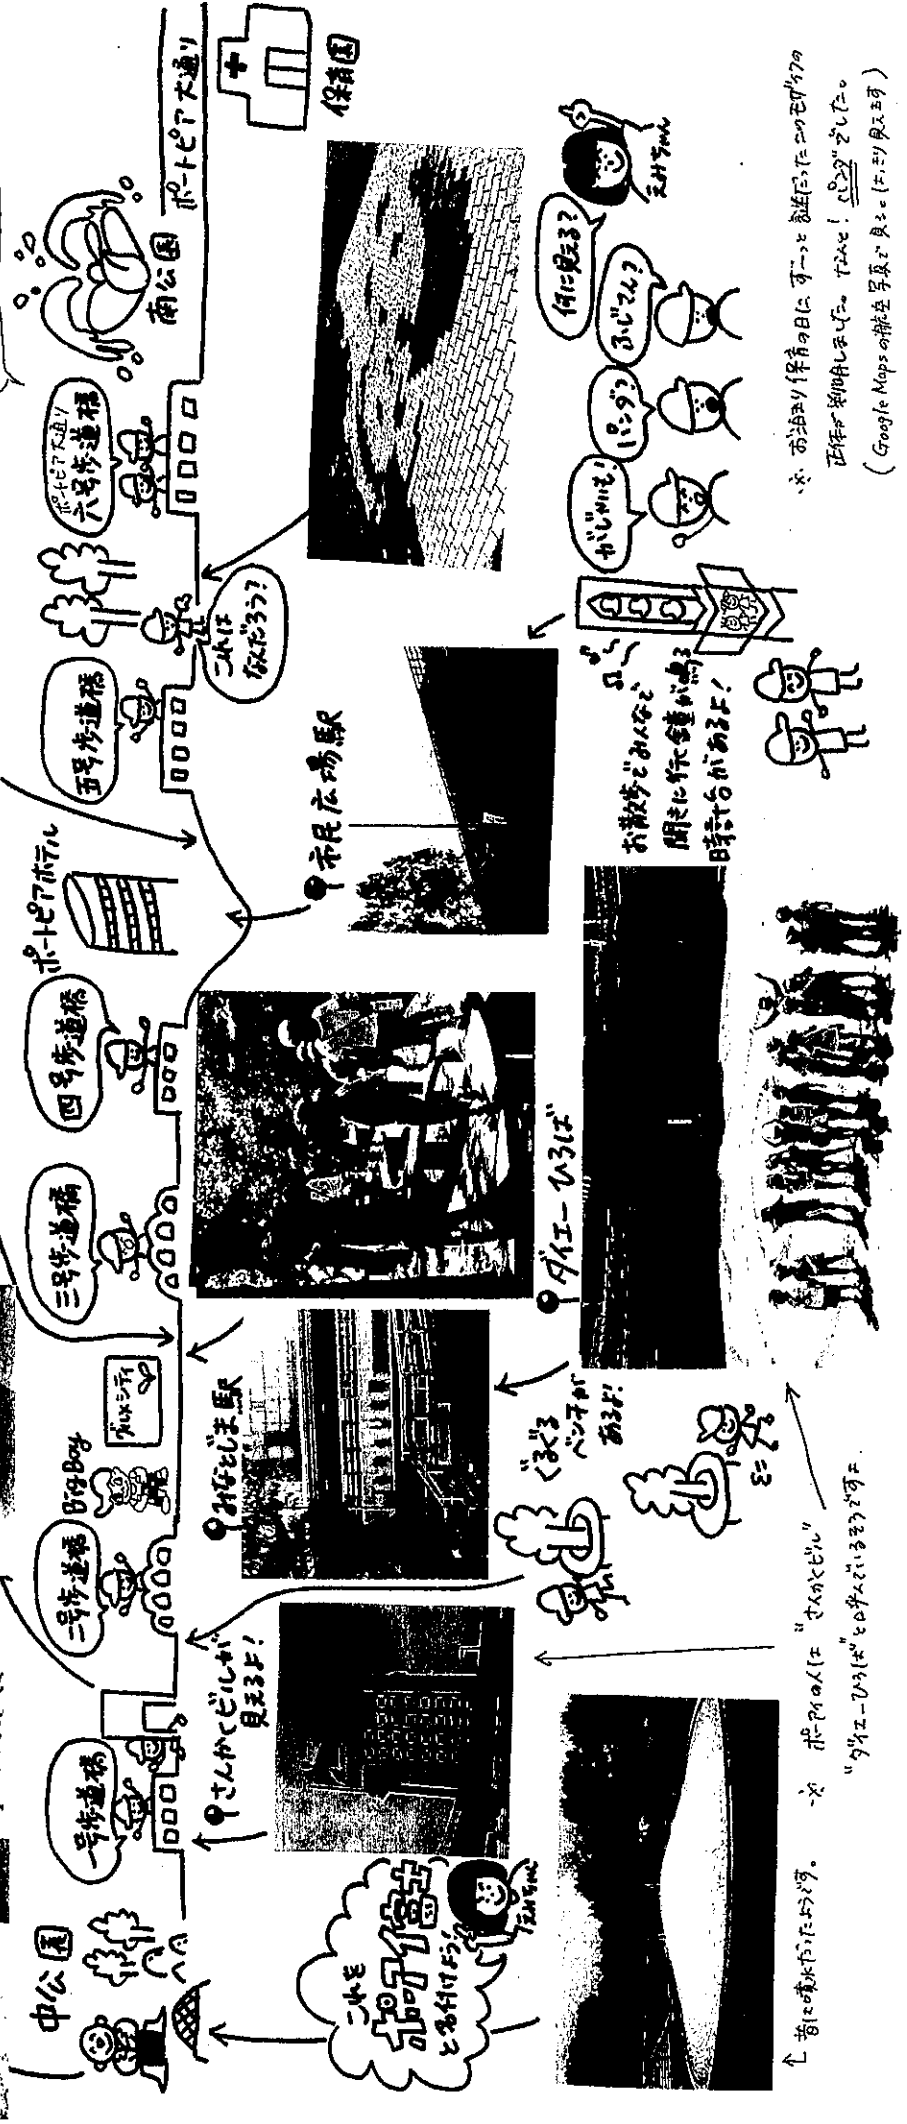 中公園
一号歩道橋
二号歩道橋
Big Boy
グルメシティ
三号歩道橋
四号歩道橋
ポートピアホテル
五号歩道橋
これは
なんだろう?
ポートピア大通り
六号歩道橋
南公園
ポートピア大通り
保育園
これを
ポアイ富士
と名付けよう!
えみちゃん
さんかくビルが
見えるよ!
みなとじま駅
ダイエーひろば
市民広場駅
ぐるぐる
ベンチが
あるよ!
お散歩でみんなで
聞きに行く鐘が鳴る
時計台があるよ!
がじゃいも!
パンダ?
ふじさん?
何に見える?
えみちゃん
↑昔は噴水だったようです。
※ ポーアイの人は "さんかくビル"
"ダイエーひろば" と呼んでいるそうですよ
※ お泊まり保育の日に ずーっと 謎だったこのモザイクの
正体が判明しました。なんと! "パンダ" でした。
(Google Mapsの航空写真で見るとはっきり見えます)